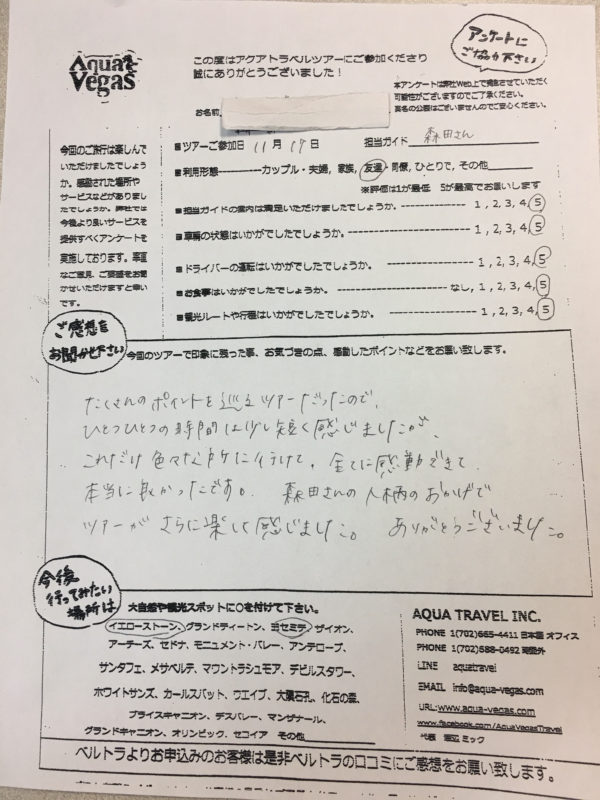 Aqua Vegas
この度はアクアトラベルツアーにご参加くださり
誠にありがとうございました！
アンケートに
ご協力下さい
本アンケートは弊社Web上で掲載させていただく
可能性がございますのでご了承ください。
実名の公開はございませんのでご安心ください。
お名前
今回のご旅行は楽しんで
いただけましたでしょう
か。感動された場所や
サービスなどがありまし
たでしょうか。弊社では
今後より良いサービスを
提供すべくアンケートを
実施しております。率直
なご意見、ご要望をお聞
かせいただけますと幸い
です。
■ツアーご参加日 11月19日 担当ガイド 森田さん
■利用形態------------カップル・夫婦, 家族, 友達・同僚, ひとりで, その他
※評価は1が最低 5が最高でお願いします
■担当ガイドの案内は満足いただけましたでしょうか。---------------- 1, 2, 3, 4, 5
■車輌の状態はいかがでしたでしょうか。---------------- 1, 2, 3, 4, 5
■ドライバーの運転はいかがでしたでしょうか。---------------- 1, 2, 3, 4, 5
■お食事はいかがでしたでしょうか。---------------- なし, 1, 2, 3, 4, 5
■観光ルートや行程はいかがでしたでしょうか。---------------- 1, 2, 3, 4, 5
ご感想を
お聞かせ下さい
今回のツアーで印象に残った事、お気づきの点、感動したポイントなどをお願い致します。
たくさんのポイントを巡るツアーだったので、
ひとつひとつの時間は少し短く感じましたが、
これだけ色々な所に行けて、全てに感動できて
本当に良かったです。 森田さんの人柄のおかげで
ツアーがさらに楽しく感じました。 ありがとうございました。
今後
行ってみたい
場所は
大自然や観光スポットに〇を付けて下さい。
イエローストーン、グランドティートン、ヨセミテ、ザイオン、
アーチーズ、セドナ、モニュメント・バレー、アンテロープ、
サンタフェ、メサベルデ、マウントラシュモア、デビルスタワー、
ホワイトサンズ、カールスバット、ウエイブ、大隕石孔、化石の森、
ブライスキャニオン、デスバレー、マンザナール、
グランドキャニオン、オリンピック、セコイア その他
AQUA TRAVEL INC.
PHONE 1(702)665-4411 日本語 オフィス
PHONE 1(702)588-0492 時間外
LINE aquatravel
EMAIL info@aqua-vegas.com
URL:www.aqua-vegas.com
www.facebook.com/AquaVegasTravel
代表 渡辺 ミック
ベルトラよりお申込みのお客様は是非ベルトラの口コミにご感想をお願い致します。